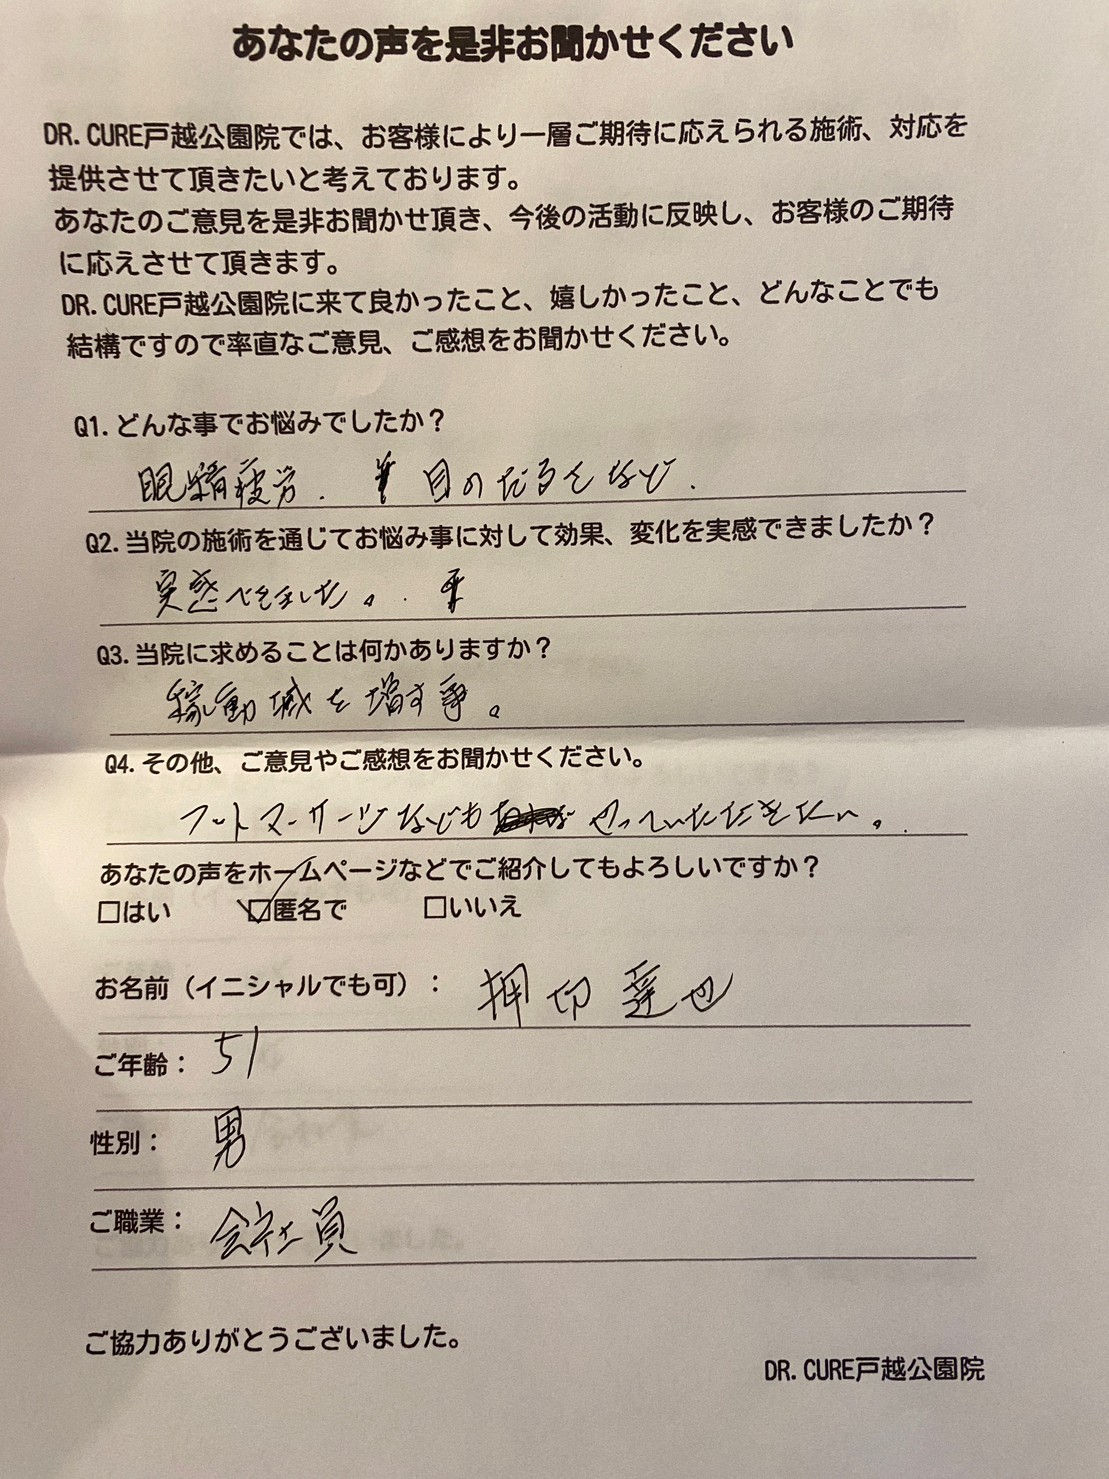 あなたの声を是非お聞かせください
DR. CURE戸越公園院では、お客様により一層ご期待に応えられる施術、対応を
提供させて頂きたいと考えております。
あなたのご意見を是非お聞かせ頂き、今後の活動に反映し、お客様のご期待
に応えさせて頂きます。
DR. CURE戸越公園院に来て良かったこと、嬉しかったこと、どんなことでも
結構ですので率直なご意見、ご感想をお聞かせください。
Q1. どんな事でお悩みでしたか？
眼精疲労. 目のだるさなど.
Q2. 当院の施術を通じてお悩み事に対して効果、変化を実感できましたか？
実感できました。
Q3. 当院に求めることは何かありますか？
稼動域を増す事。
Q4. その他、ご意見やご感想をお聞かせください。
フットマッサージなども やっていただきたい。
あなたの声をホームページなどでご紹介してもよろしいですか？
□はい ☑匿名で □いいえ
お名前（イニシャルでも可）： 押切 達也
ご年齢： 51
性別： 男
ご職業： 会社員
ご協力ありがとうございました。
DR. CURE戸越公園院